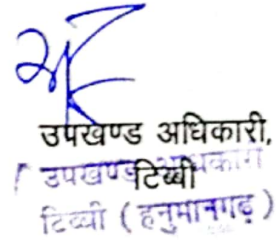 उपखण्ड अधिकारी,
टिब्बी
उपखण्ड अधिकारी
टिब्बी (हनुमानगढ़)